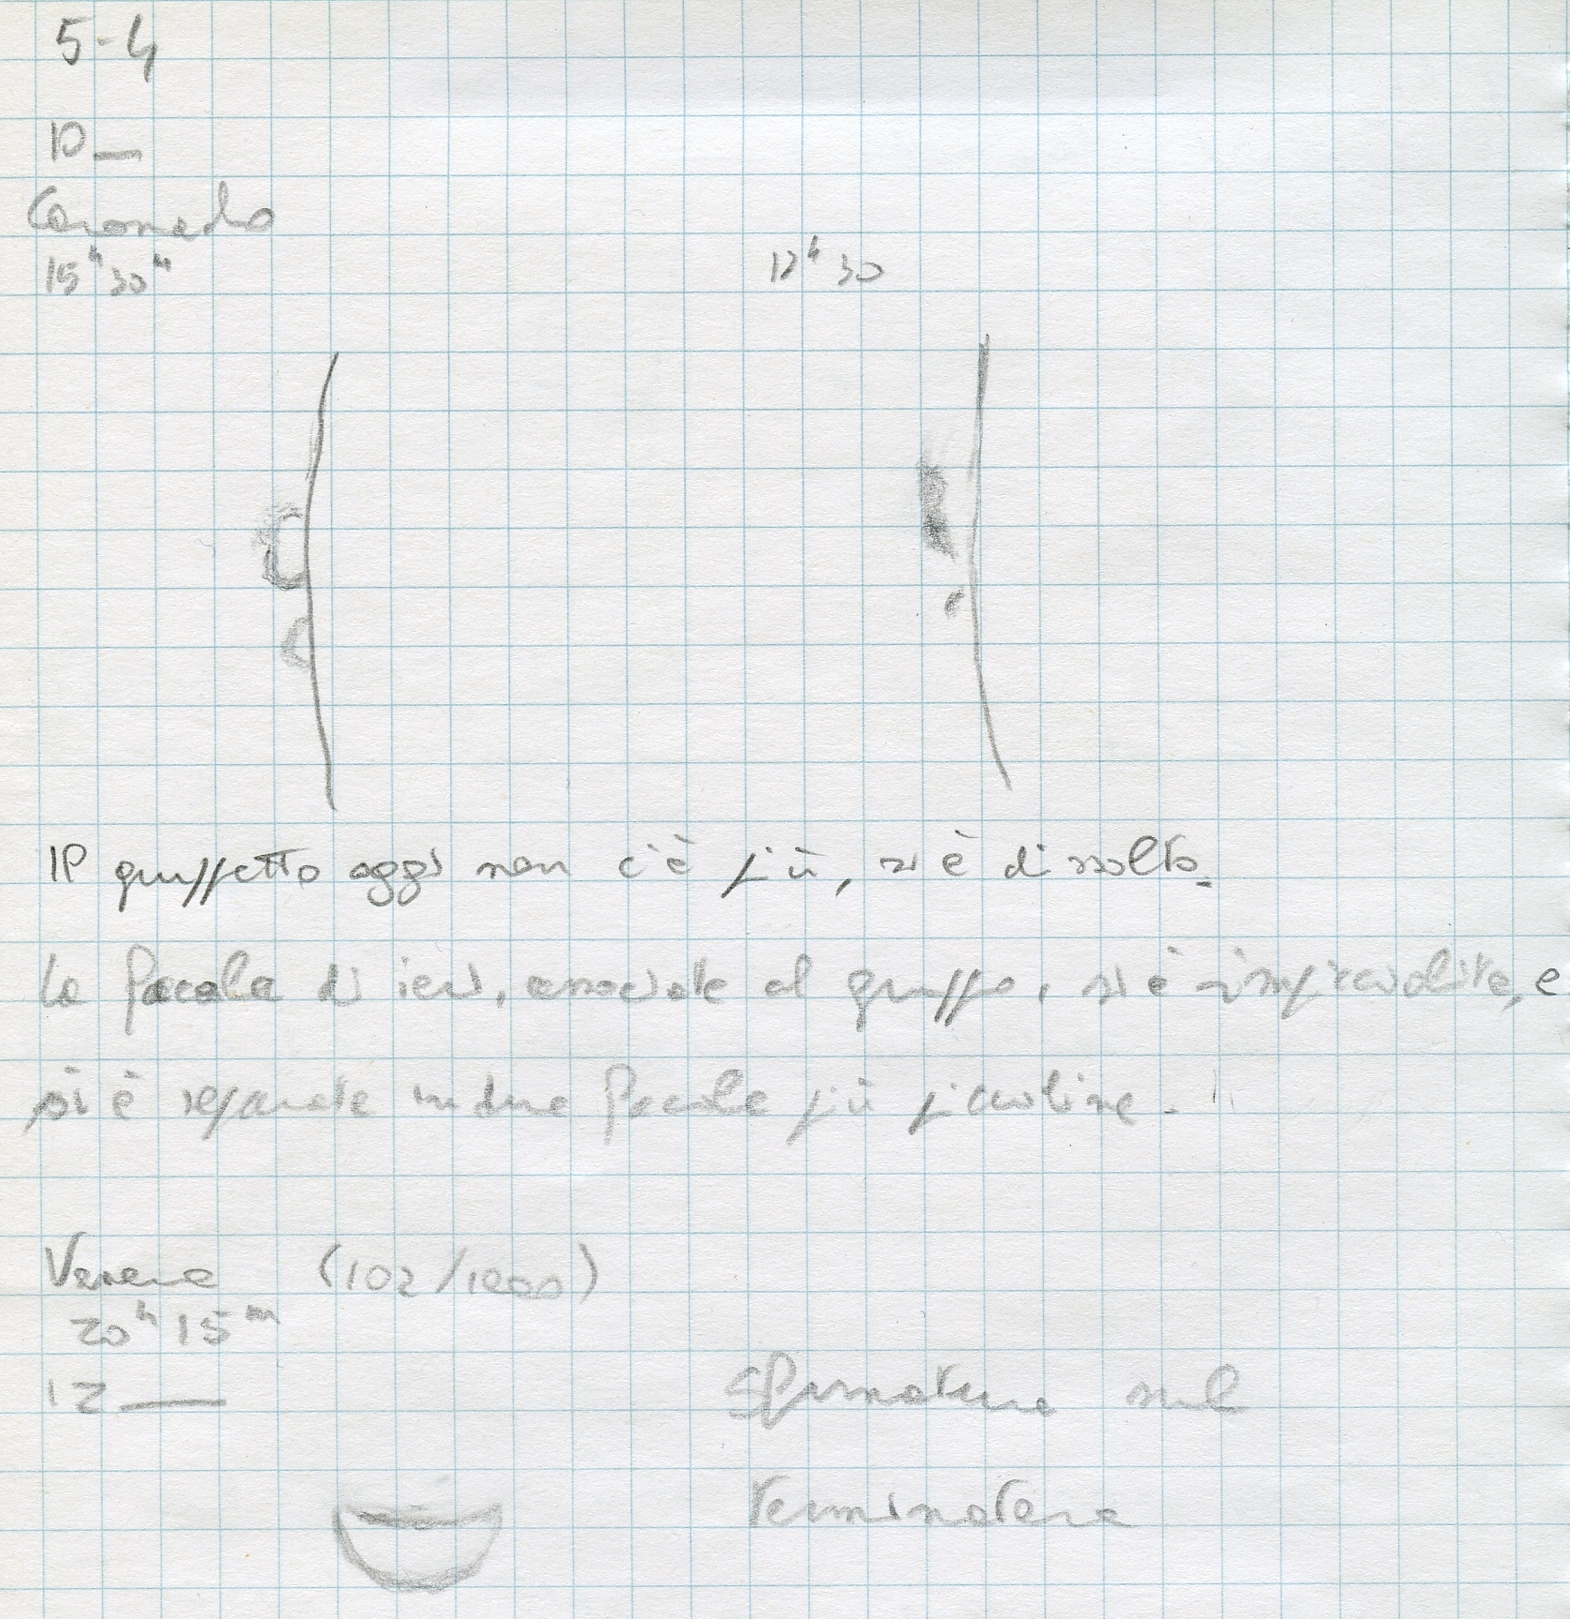 5-4
10_
Coronado
15h 30m
17h 30
Il gruppetto oggi non c'è più, si è dissolto.
La facola di ieri, associata al gruppo, si è rimpicciolita, e
si è separata in due facole più piccoline.
Venere (102/1000)
20h 15m
12_
Sfumature sul
terminatore